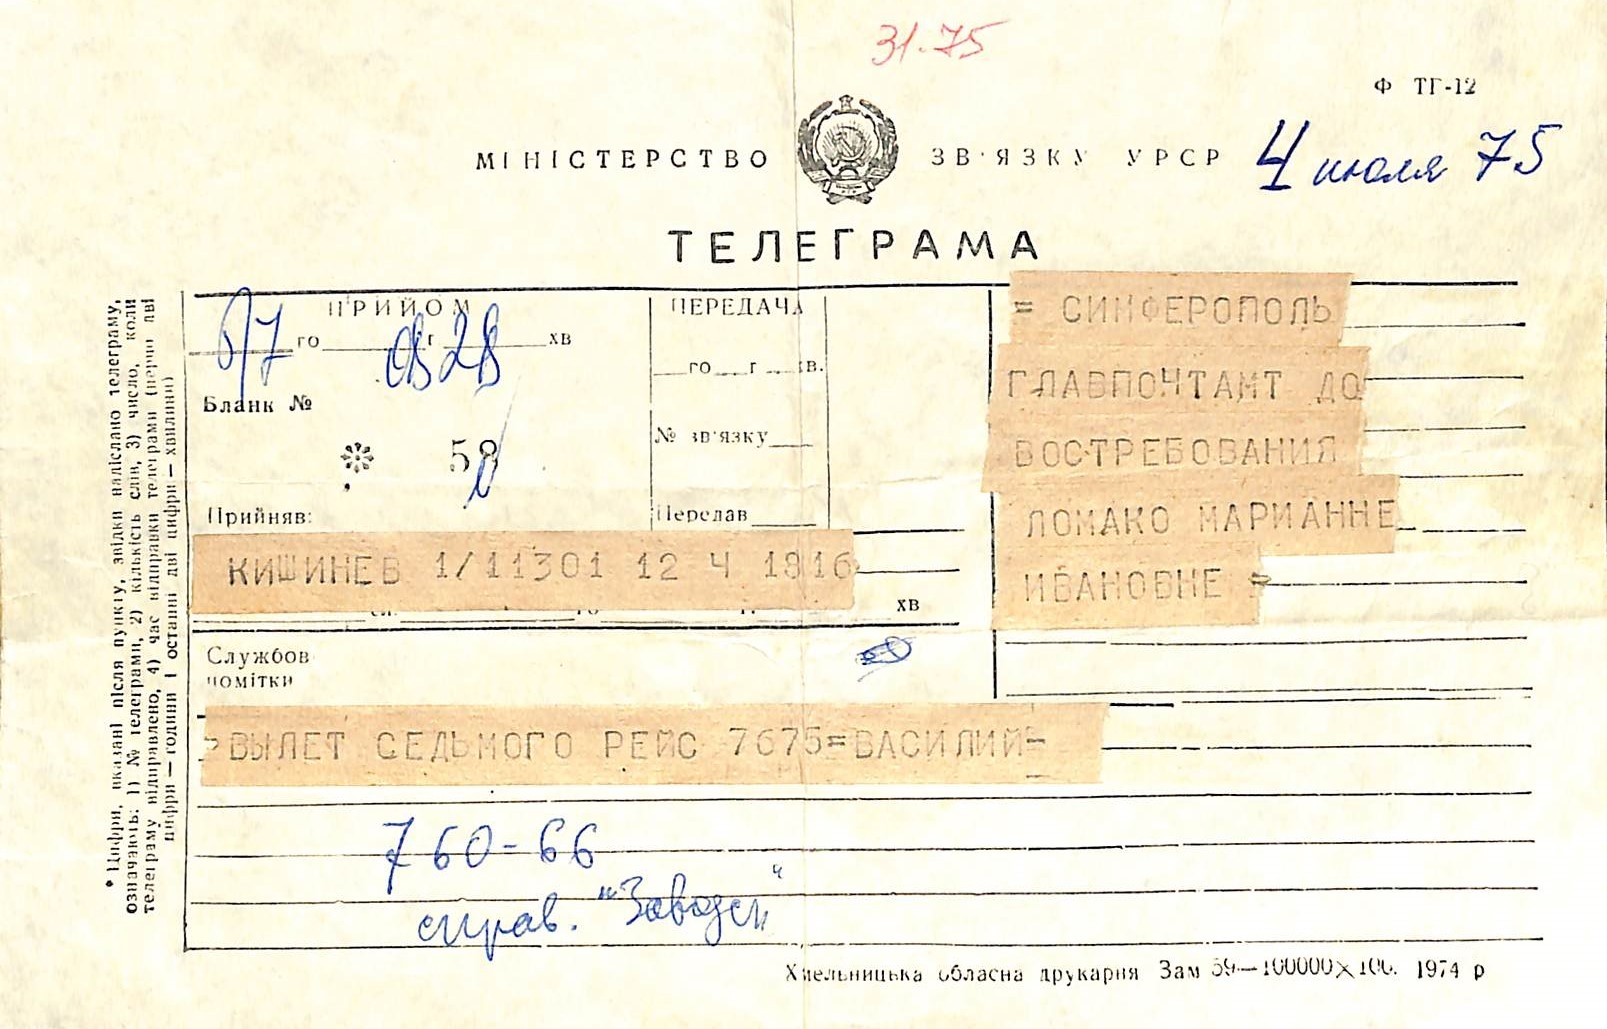 31.75
Ф ТГ-12
МІНІСТЕРСТВО ЗВ'ЯЗКУ УРСР
4 июля 75
ТЕЛЕГРАМА
ПРИЙОМ
го г хв
Бланк №
58
Прийняв:
ПЕРЕДАЧА
го г хв.
№ зв'язку
Передав
= СИМФЕРОПОЛЬ
ГЛАВПОЧТАМТ ДО
ВОСТРЕБОВАНИЯ
ЛОМАКО МАРИАННЕ
ИВАНОВНЕ =
КИШИНЕВ 1/11301 12 4 1816
сл. го г. хв
Службові
помітки
ВЫЛЕТ СЕДЬМОГО РЕЙС 7675=ВАСИЛИЙ=
760-66
справ. "Заводск"
* Цифри, вказані після пункту, звідки надіслано телеграму,
означають: 1) № телеграми, 2) кількість слів, 3) число, коли
телеграму відправлено, 4) час відправки телеграми (перші дві
цифри — години і останні дві цифри — хвилини)
Хмельницька обласна друкарня Зам 59—100000×100. 1974 р